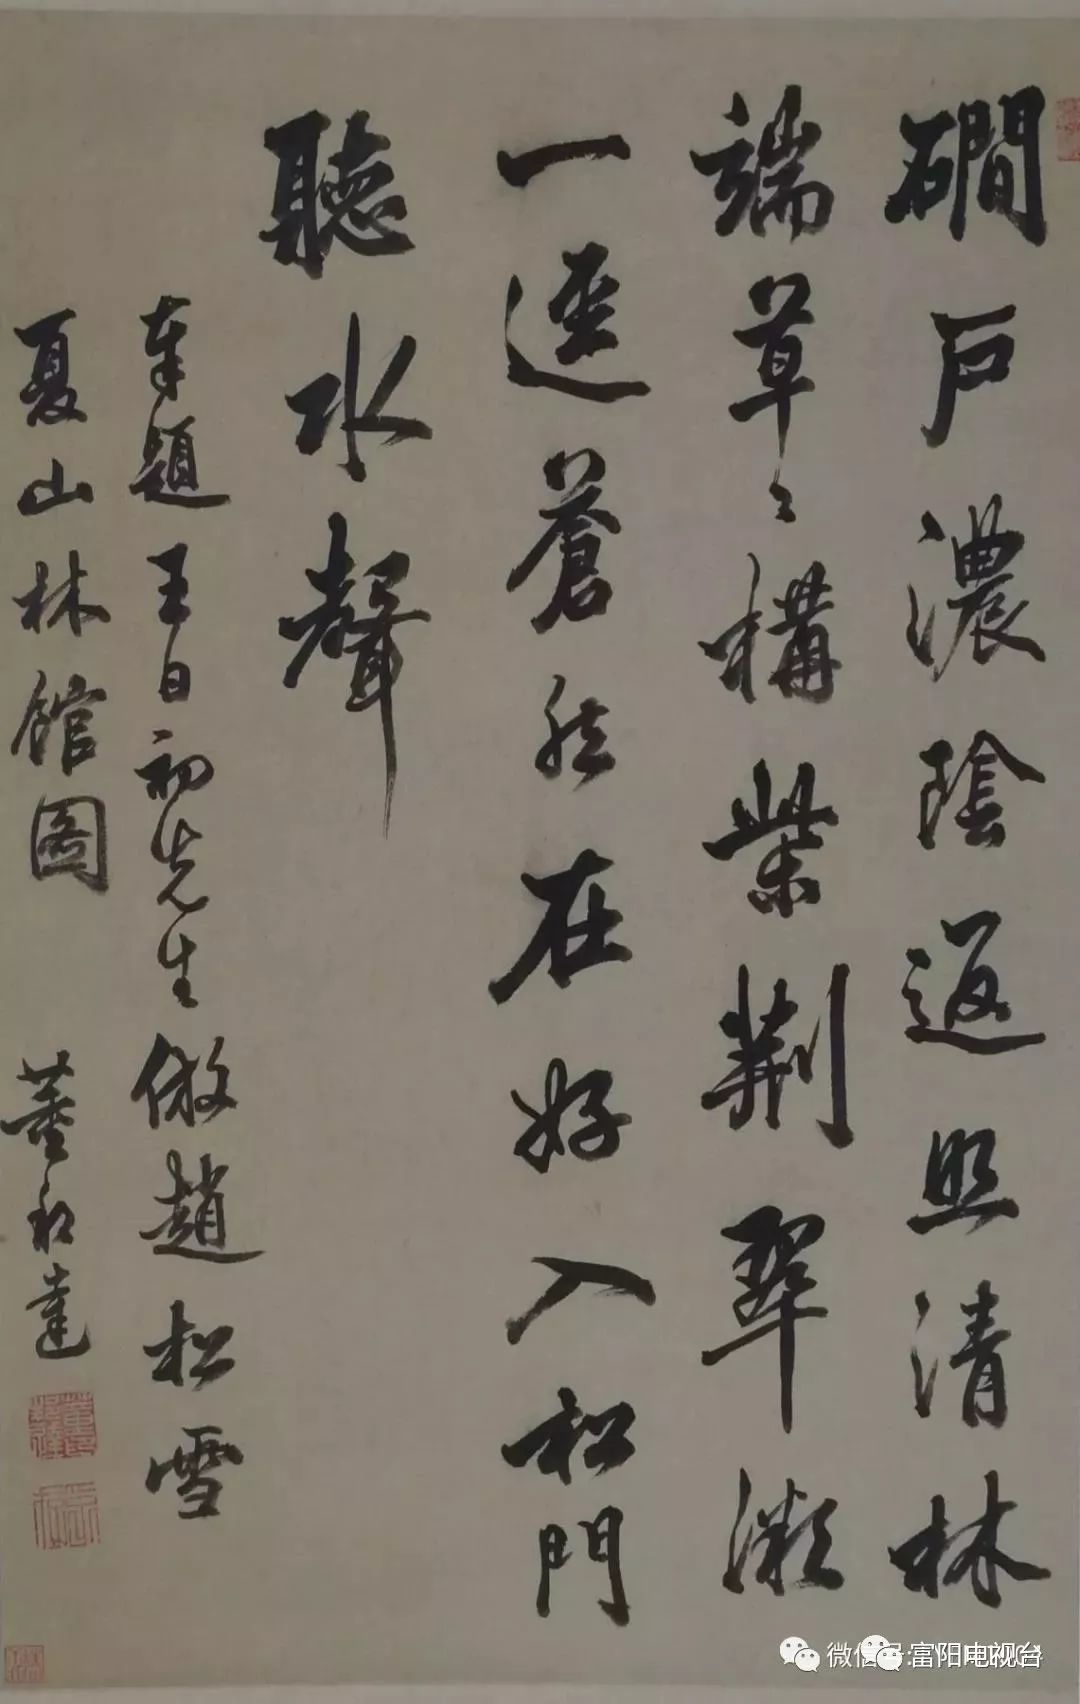 磵戶濃陰返照清林
端草〻構柴荆翠漵
一逕蒼然在好入松門
聽水聲
奉題王日初先生倣趙松雪
夏山林館圖
董邦達
微信号:富阳电视台